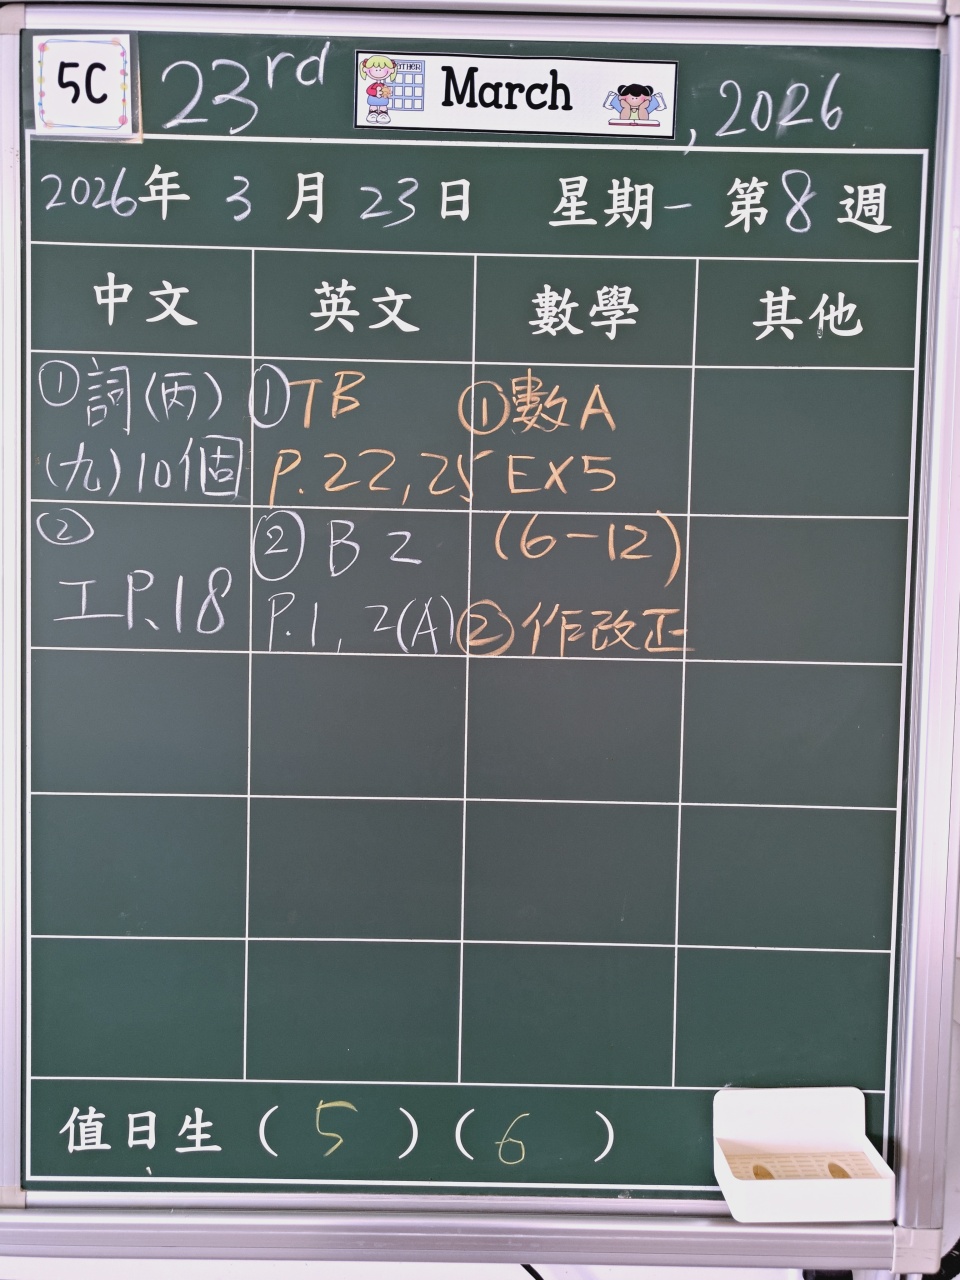 5C 23rd March, 2026
2026年 3月23日 星期一 第8週
中文 英文 數學 其他
①詞(丙)
(九)10個
②
工P.18
①TB
P.22,25
②B2
P.1, 2(A)
①數A
EX5
(6-12)
②作改正
值日生(5)(6)